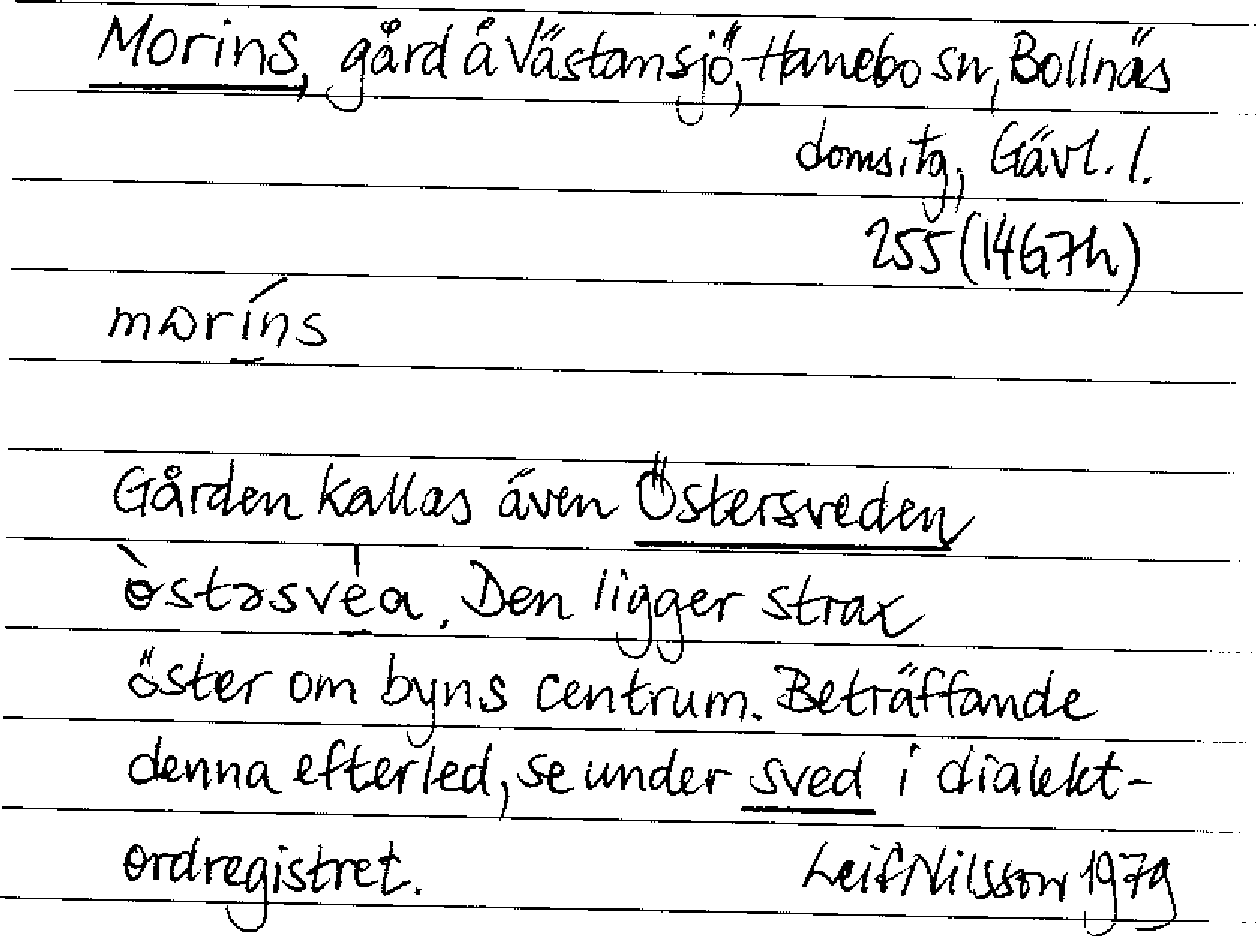 Morins, gård å Västansjö, Hanebo sn, Bollnäs
doms.tg, Gävl. l.
255 (14G7h)
mωríns
Gården kallas även Östersveden
ɵ̀stəsvéa. Den ligger strax
öster om byns centrum. Beträffande
denna efterled, se under sved i dialekt-
ordregistret. Leif Nilsson 1979